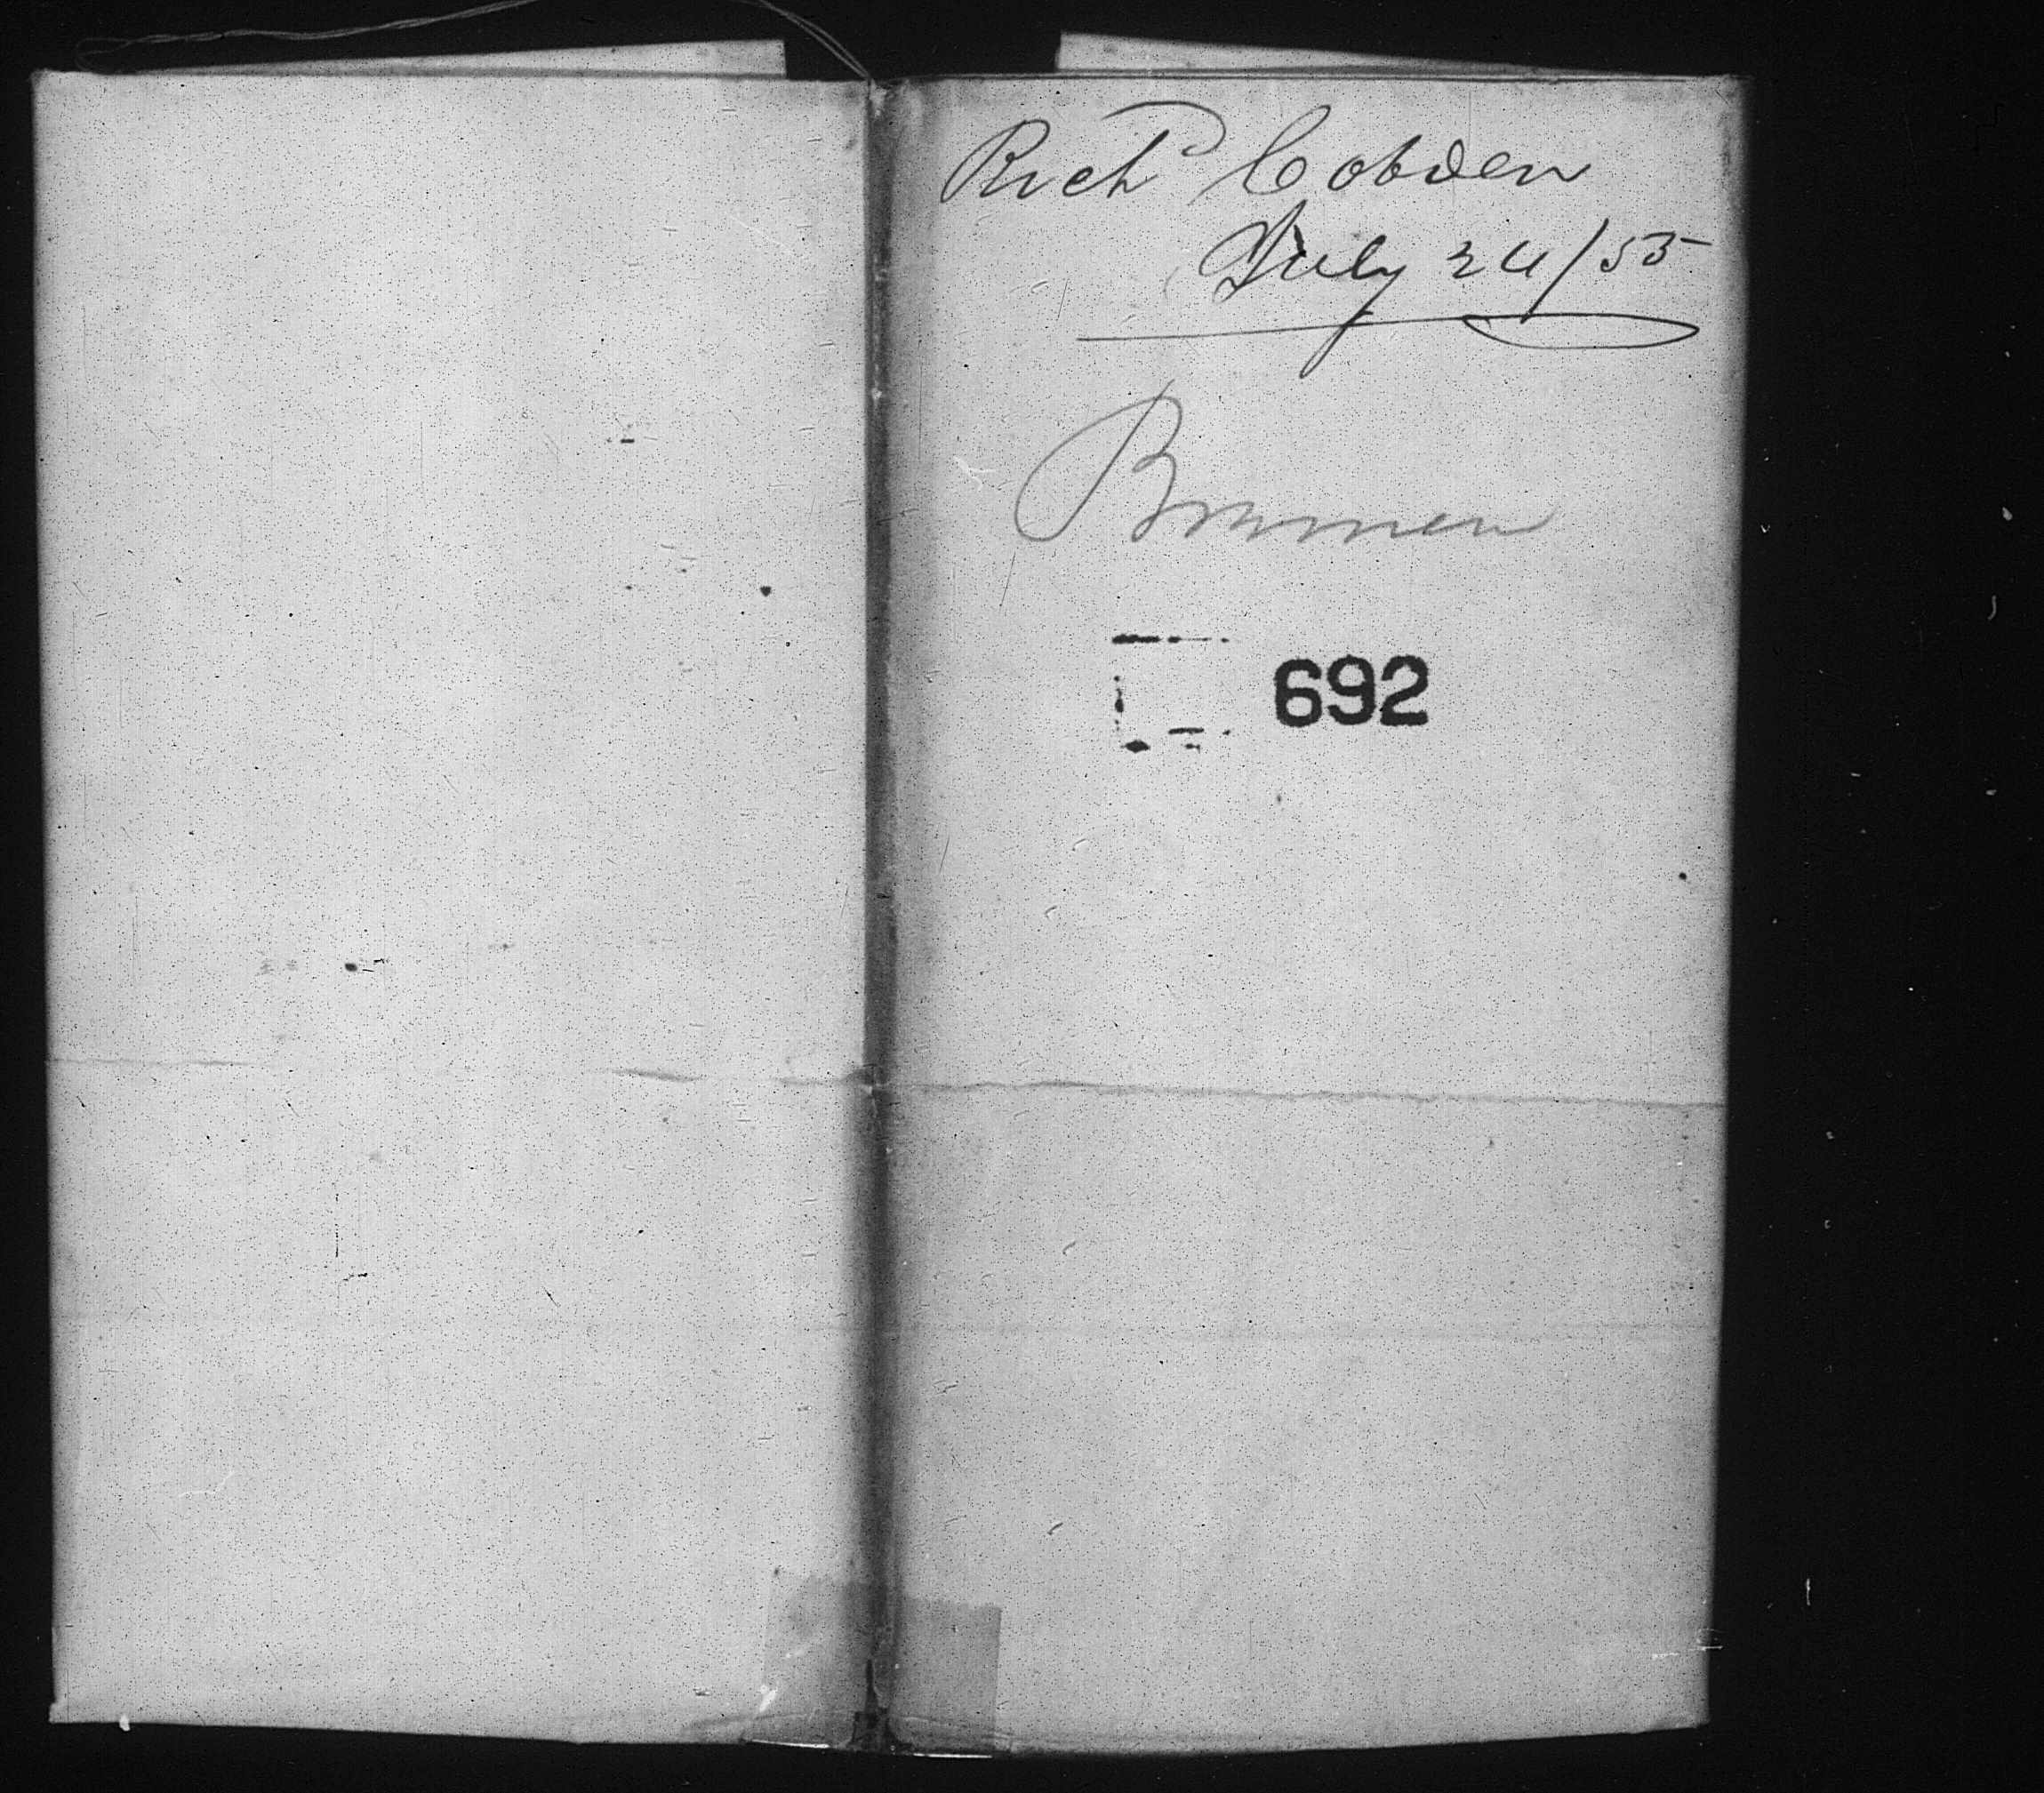 Richd Cobden
July 24/55
692